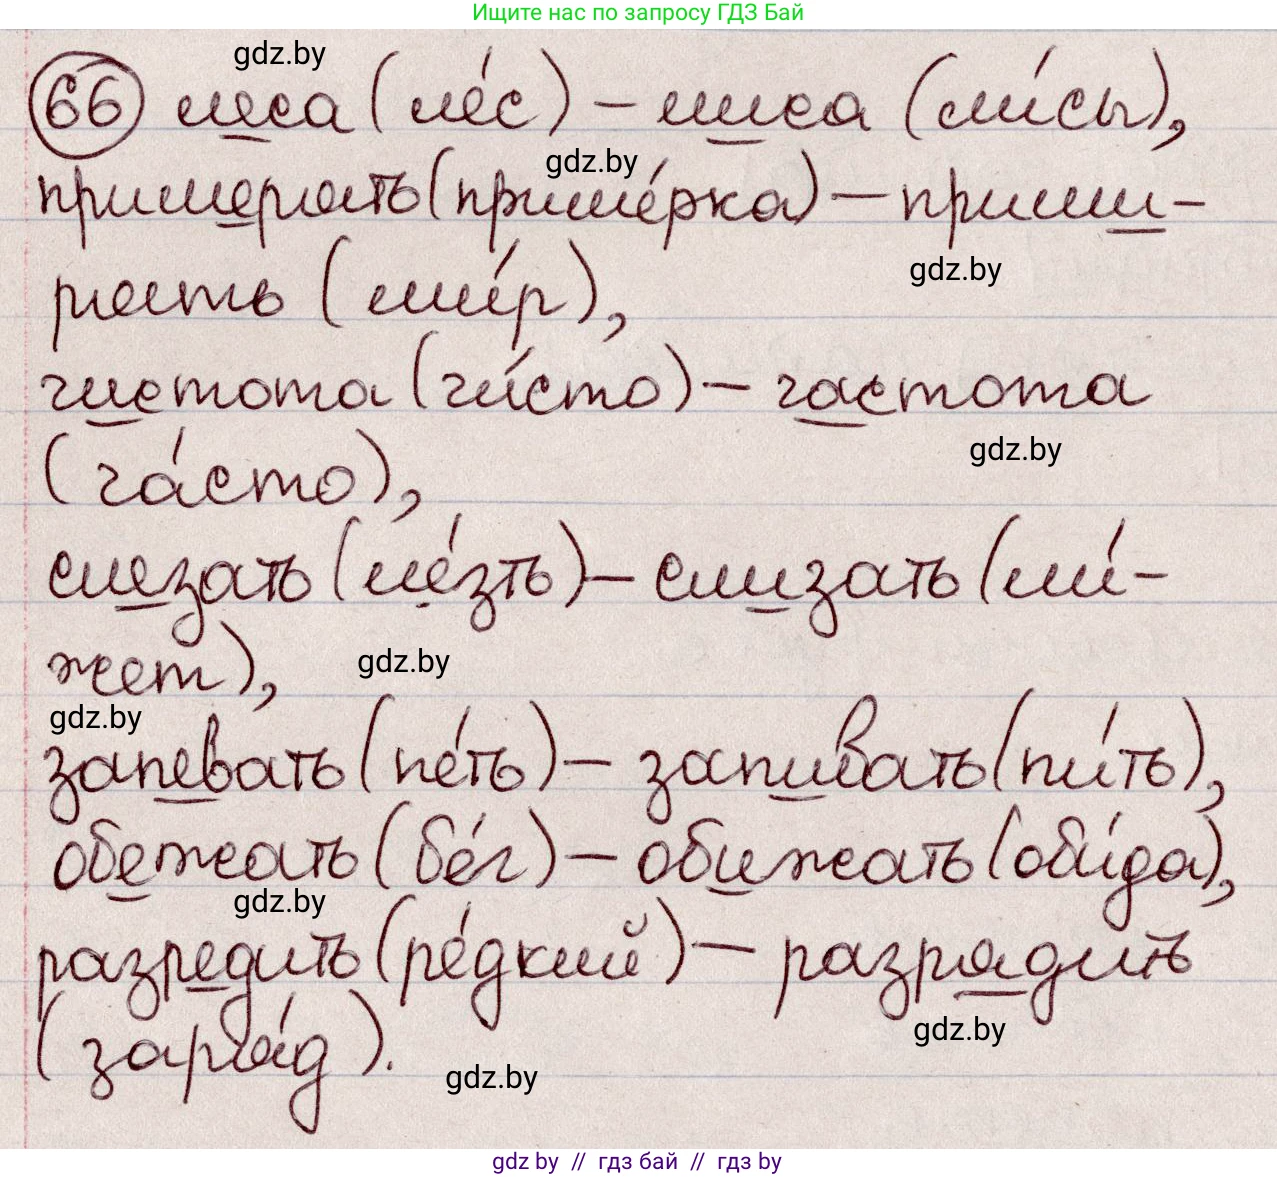 Ищите нас по запросу ГДЗ Бай
gdz.by
66 леса (ле́с) – лиса (ли́сы),
gdz.by
примерять (приме́рка) – прими-
gdz.by
рять (ми́р),
чистота (чи́сто) – частота
gdz.by
(ча́сто),
слезать (ле́зть) – слизать (ли́-
жет),
gdz.by
gdz.by
запевать (пе́ть) – запивать (пи́ть),
обежать (бе́г) – обижать (оби́да),
gdz.by
разредить (ре́дкий) – разрядить
gdz.by
(заря́д).
gdz.by
gdz by // гдз бай // гдз by